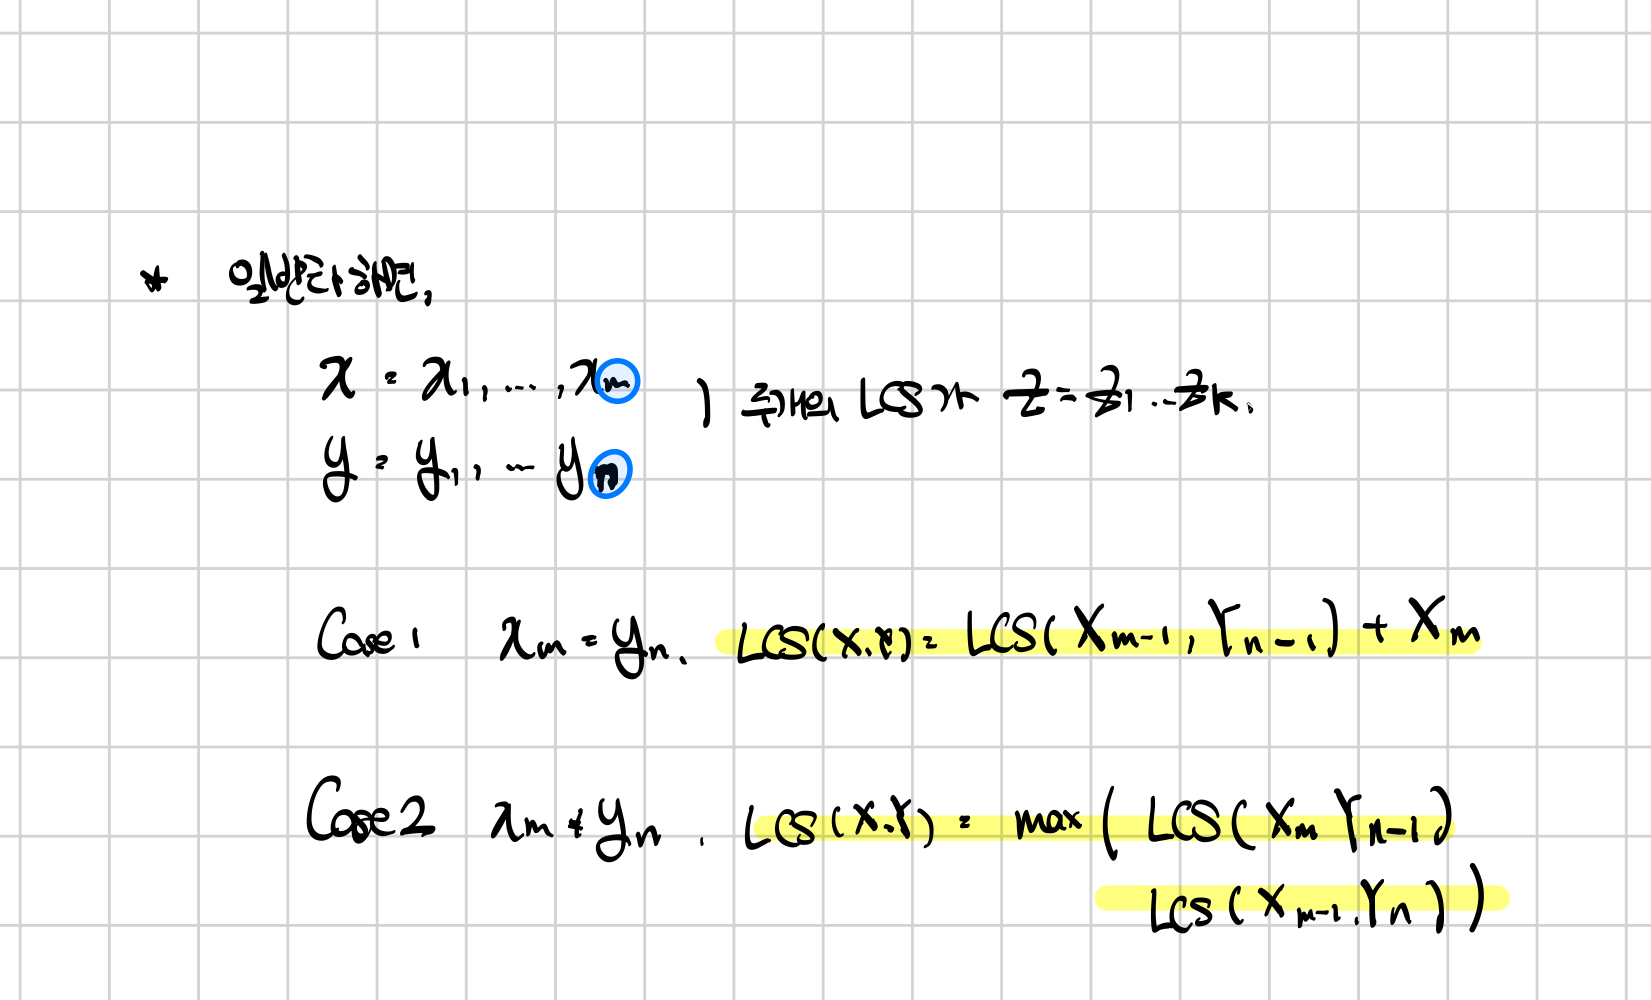 * 일반화하면,
x = x₁, ..., xₘ
) 두개의 LCS가 z = z₁ .. zₖ.
y = y₁, , ... yₙ
Case 1 xₘ = yₙ. LCS(X.Y) = LCS(Xₘ₋₁, Yₙ₋₁) + Xₘ
Case 2 xₘ ≠ yₙ . LCS(X.Y) = max ( LCS(Xₘ Yₙ₋₁)
LCS(Xₘ₋₁.Yₙ) )